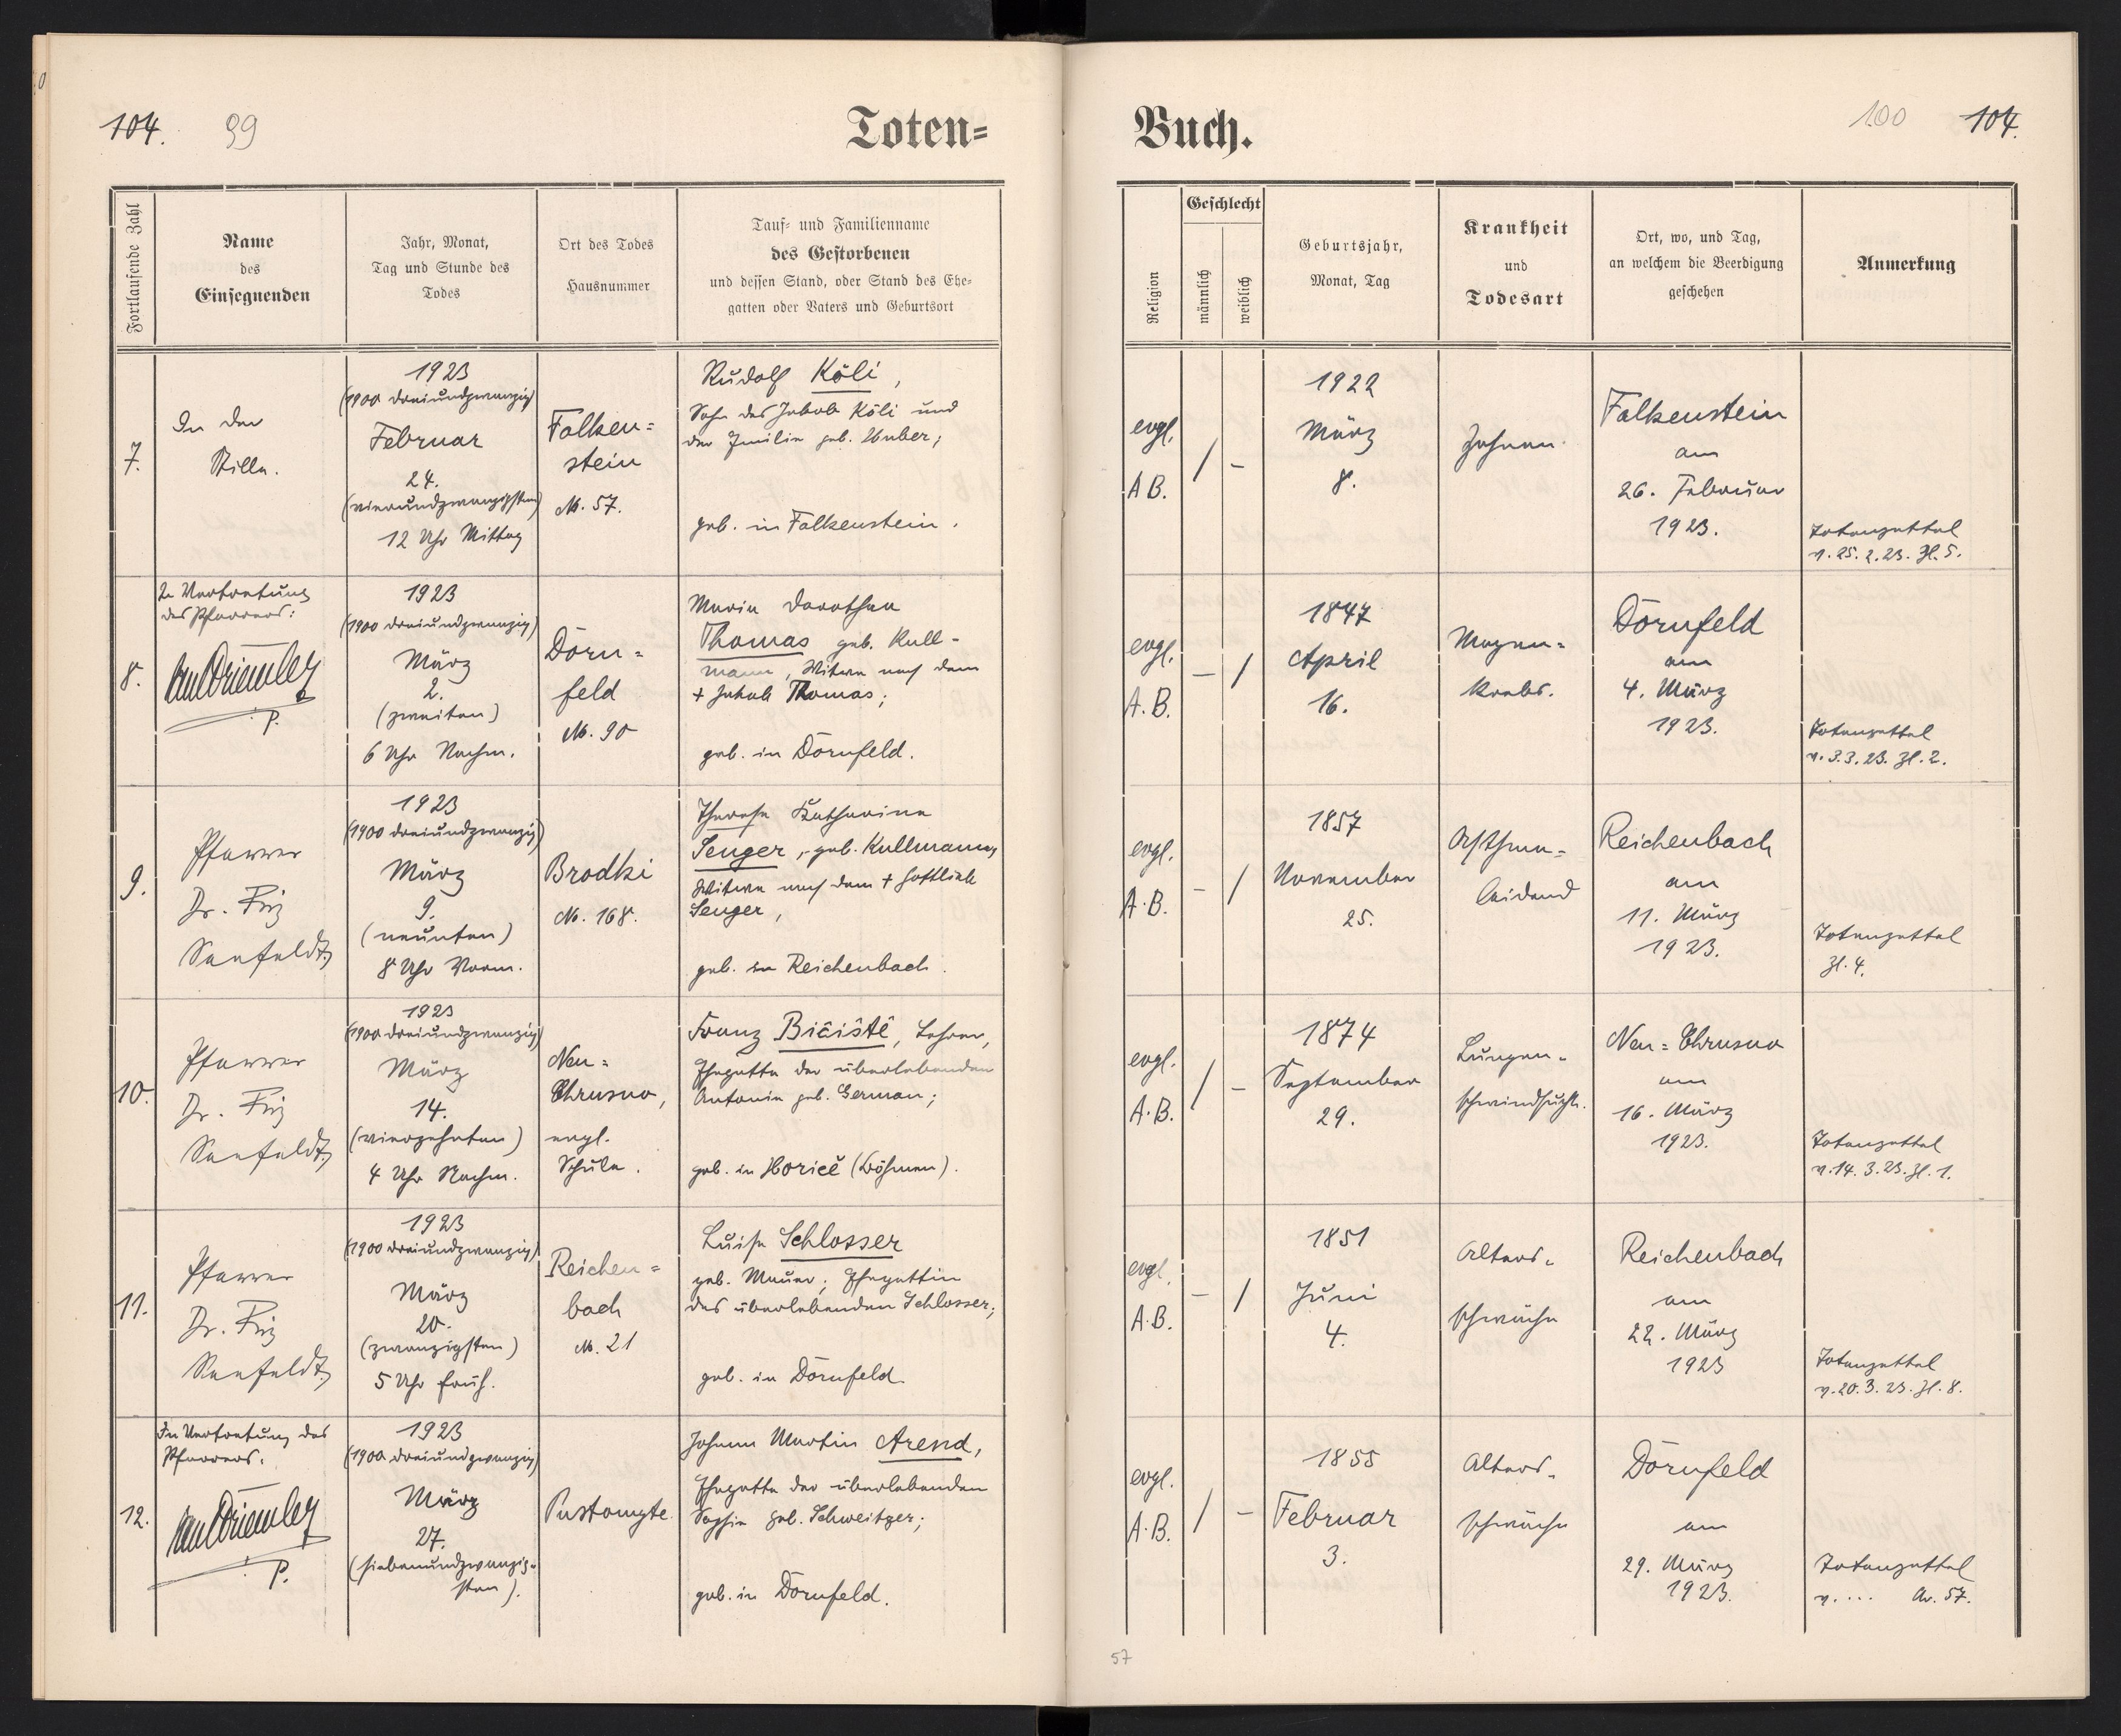 104. 99
Toten=
Fortlaufende Zahl
Name
des
Einsegnenden
Jahr, Monat,
Tag und Stunde des
Todes
Ort des Todes
Hausnummer
Tauf- und Familienname
des Gestorbenen
und dessen Stand, oder Stand des Ehe-
gatten oder Vaters und Geburtsort
7.
In der
Stille.
1923
(1900 dreiundzwanzig)
Februar
24.
(vierundzwanzigsten)
12 Uhr Mittag
Falken=
stein
No. 57.
Rudolf Köli,
Sohn des Jakob Köli und
der Emilie geb. Huber;
geb. in Falkenstein.
8.
In Vertretung
des Pfarrers:
P.
1923
(1900 dreiundzwanzig)
März
2.
(zweiten)
6 Uhr Nachm.
Dorn=
feld
No. 90
Maria Dorothea
Thomas geb. Kull-
mann, Witwe nach dem
+ Jakob Thomas;
geb. in Dornfeld.
9.
Pfarrer
Dr. Fritz
Seefeldt
1923
(1900 dreiundzwanzig)
März
9.
(neunten)
8 Uhr Vorm.
Brodki
No. 168.
Therese Katharina
Senger, geb. Kullmann,
Witwe nach dem + Gottlieb
Senger,
geb. in Reichenbach.
10.
Pfarrer
Dr. Fritz
Seefeldt
1923
(1900 dreiundzwanzig)
März
14.
(vierzehnten)
4 Uhr Nachm.
Neu=
Chrusno,
evgl.
Schule.
Franz Bičištĕ, Lehrer,
Ehegatte der überlebenden
Antonie geb. German;
geb. in Horicĕ (Böhmen).
11.
Pfarrer
Dr. Fritz
Seefeldt
1923
(1900 dreiundzwanzig)
März
20.
(zwanzigsten)
5 Uhr früh.
Reichen=
bach
No. 21
Luise Schlosser
geb. Mauer, Ehegattin
des überlebenden Schlosser;
geb. in Dornfeld
12.
In Vertretung des
Pfarrers:
P.
1923
(1900 dreiundzwanzig)
März
27.
(siebenundzwanzig-
sten).
Pustomyte.
Johann Martin Arend,
Ehegatte der überlebenden
Sophie geb. Schweitzer;
geb. in Dornfeld.
Buch.
100 104.
Religion
Geschlecht
männlich
weiblich
Geburtsjahr,
Monat, Tag
Krankheit
und
Todesart
Ort, wo, und Tag,
an welchem die Beerdigung
geschehen
Anmerkung
evgl.
A B.
/ -
1922
März
8.
Falkenstein
am
26. Februar
1923.
Totenzettel
v. 25. 2. 23. Zl. 5.
evgl.
A. B.
- /
1847
April
16.
Magen=
krebs.
Dornfeld
am
4. März
1923.
Totenzettel
v. 3. 3. 23. Zl. 2.
evgl.
A. B.
- /
1857
November
25.
Asthma=
leidend
Reichenbach
am
11. März
1923.
Totenzettel
Zl. 4.
evgl.
A. B.
/ -
1874
September
29.
Lungen-
schwindsucht.
Neu=Chrusno
am
16. März
1923.
Totenzettel
v. 14. 3. 23. Zl. 1.
evgl.
A. B.
- /
1851
Juni
4.
Alters-
schwäche
Reichenbach
am
22. März
1923
Totenzettel
v. 20. 3. 23. Zl. 8.
evgl.
A. B.
/ -
1855
Februar
3.
Alters-
schwäche
Dornfeld
am
29. März
1923.
Totenzettel
v. ... Nr. 57.
57